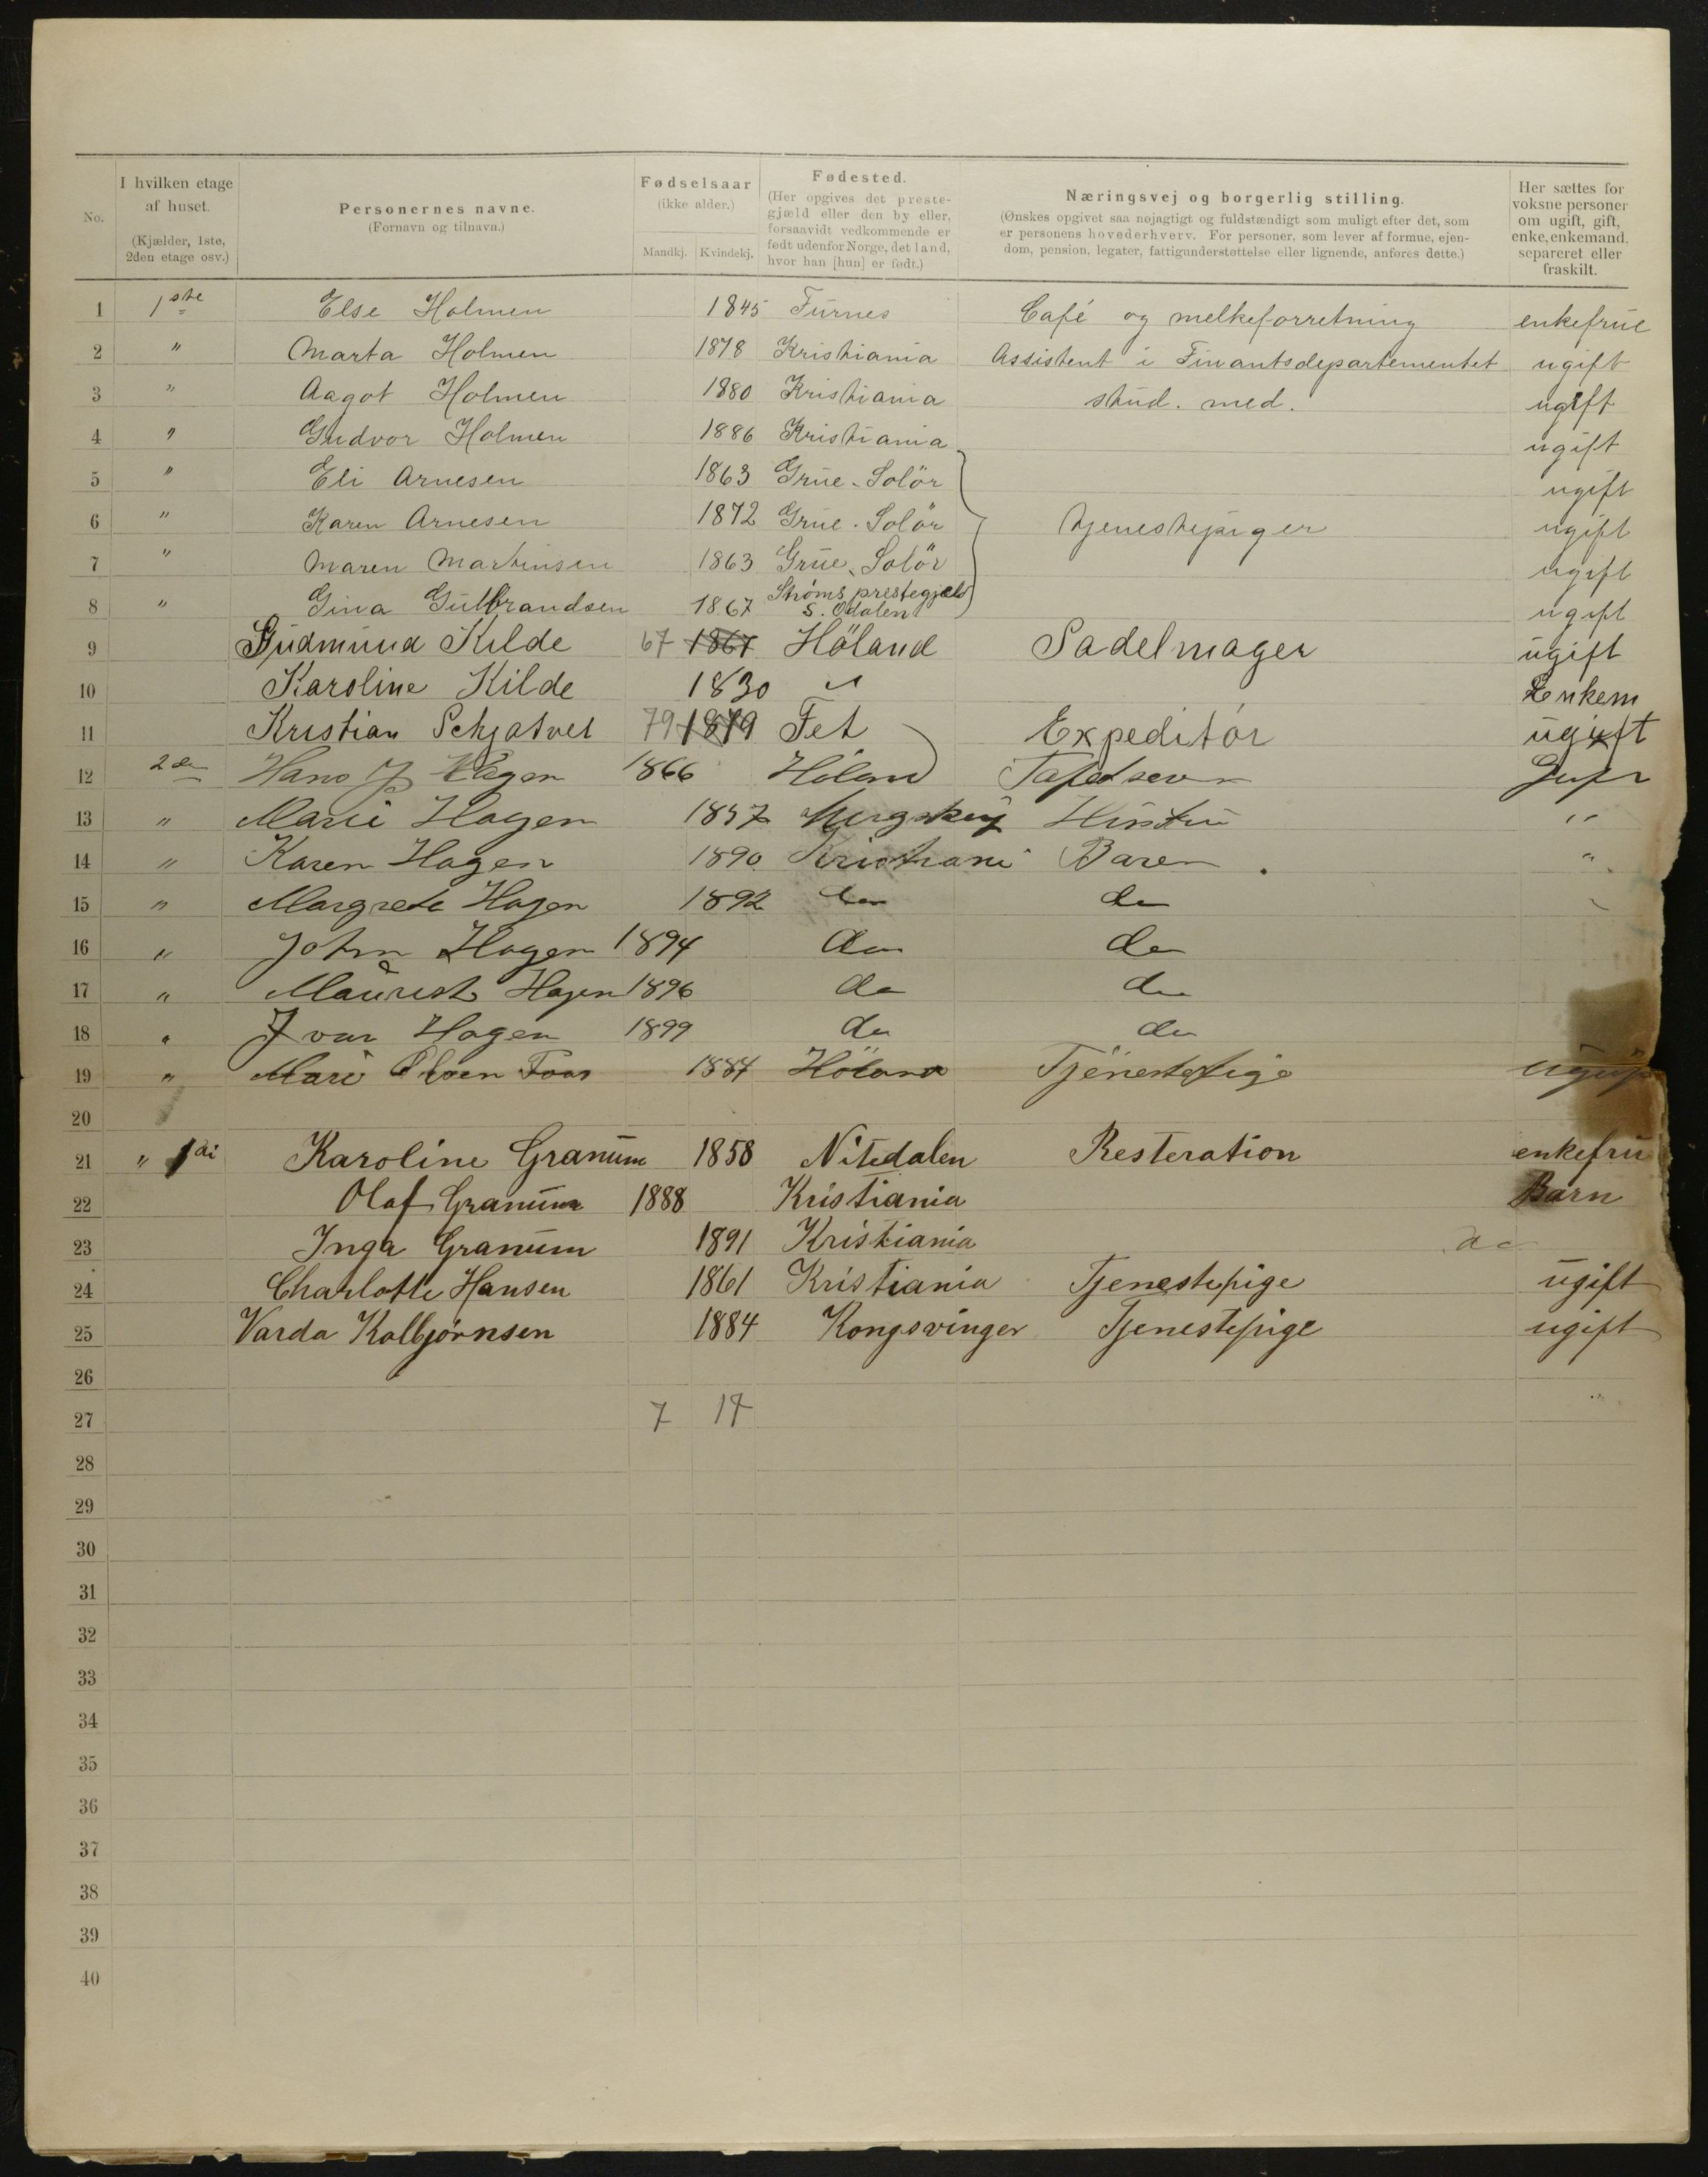 No.
I hvilken etage af huset. (Kjælder, 1ste, 2den etage osv.)
Personernes navne. (Fornavn og tilnavn.)
Fødselsaar (ikke alder.) Mandkj. Kvindekj.
Fødested. (Her opgives det prestegjæld eller den by eller, forsaavidt vedkommende er født udenfor Norge, det land, hvor han [hun] er født.)
Næringsvej og borgerlig stilling. (Ønskes opgivet saa nøjagtigt og fuldstændigt som muligt efter det, som er personens hovederhverv. For personer, som lever af formue, ejendom, pension, legater, fattigunderstøttelse eller lignende, anføres dette.)
Her sættes for voksne personer om ugift, gift, enke, enkemand, separeret eller fraskilt.
1 1ste Else Holmen 1845 Furnes Café og melkeforretning enkefrue
2 " Marta Holmen 1878 Kristiania Assistent i Finantsdepartementet ugift
3 " Aagot Holmen 1880 Kristiania stud. med. ugift
4 " Gudvor Holmen 1886 Kristiania ugift
5 " Eli Arnesen 1863 Grue-Solör ugift
6 " Karen Arnesen 1872 Grue-Solör tjenestepiger ugift
7 " Maren Martinsen 1863 Grue-Solör ugift
8 " Gina Gulbrandsen 1867 Strøms prestegjeld S. Odalen ugift
9 Gudmund Kilde 67 1867 Höland Sadelmager ugift
10 Karoline Kilde 1830 " Enkem
11 Kristian Schjatvet 79 1879 Fet Expeditör ugift
12 2den Hans J Hagen 1866 Höland
13 " Marie Hagen 1857 Hustru "
14 " Karen Hagen 1890 Kristiani Baren "
15 " Margrete Hagen 1892 do do
16 " John Hagen 1894 do do
17 " Maurist Hagen 1896 do do
18 " Ivar Hagen 1899 do do
19 " Mari 1884 Höland Tjenestepige ugift
20
21 " 1 Karoline Granum 1858 Nitedalen Resteration enkefru
22 Olaf Granum 1888 Kristiania Barn
23 Inga Granum 1891 Kristiania do
24 Charlotte Hansen 1861 Kristiania Tjenestepige ugift
25 Varda Kolbjørnsen 1884 Kongsvinger Tjenestepige ugift
26
27 7 17
28
29
30
31
32
33
34
35
36
37
38
39
40